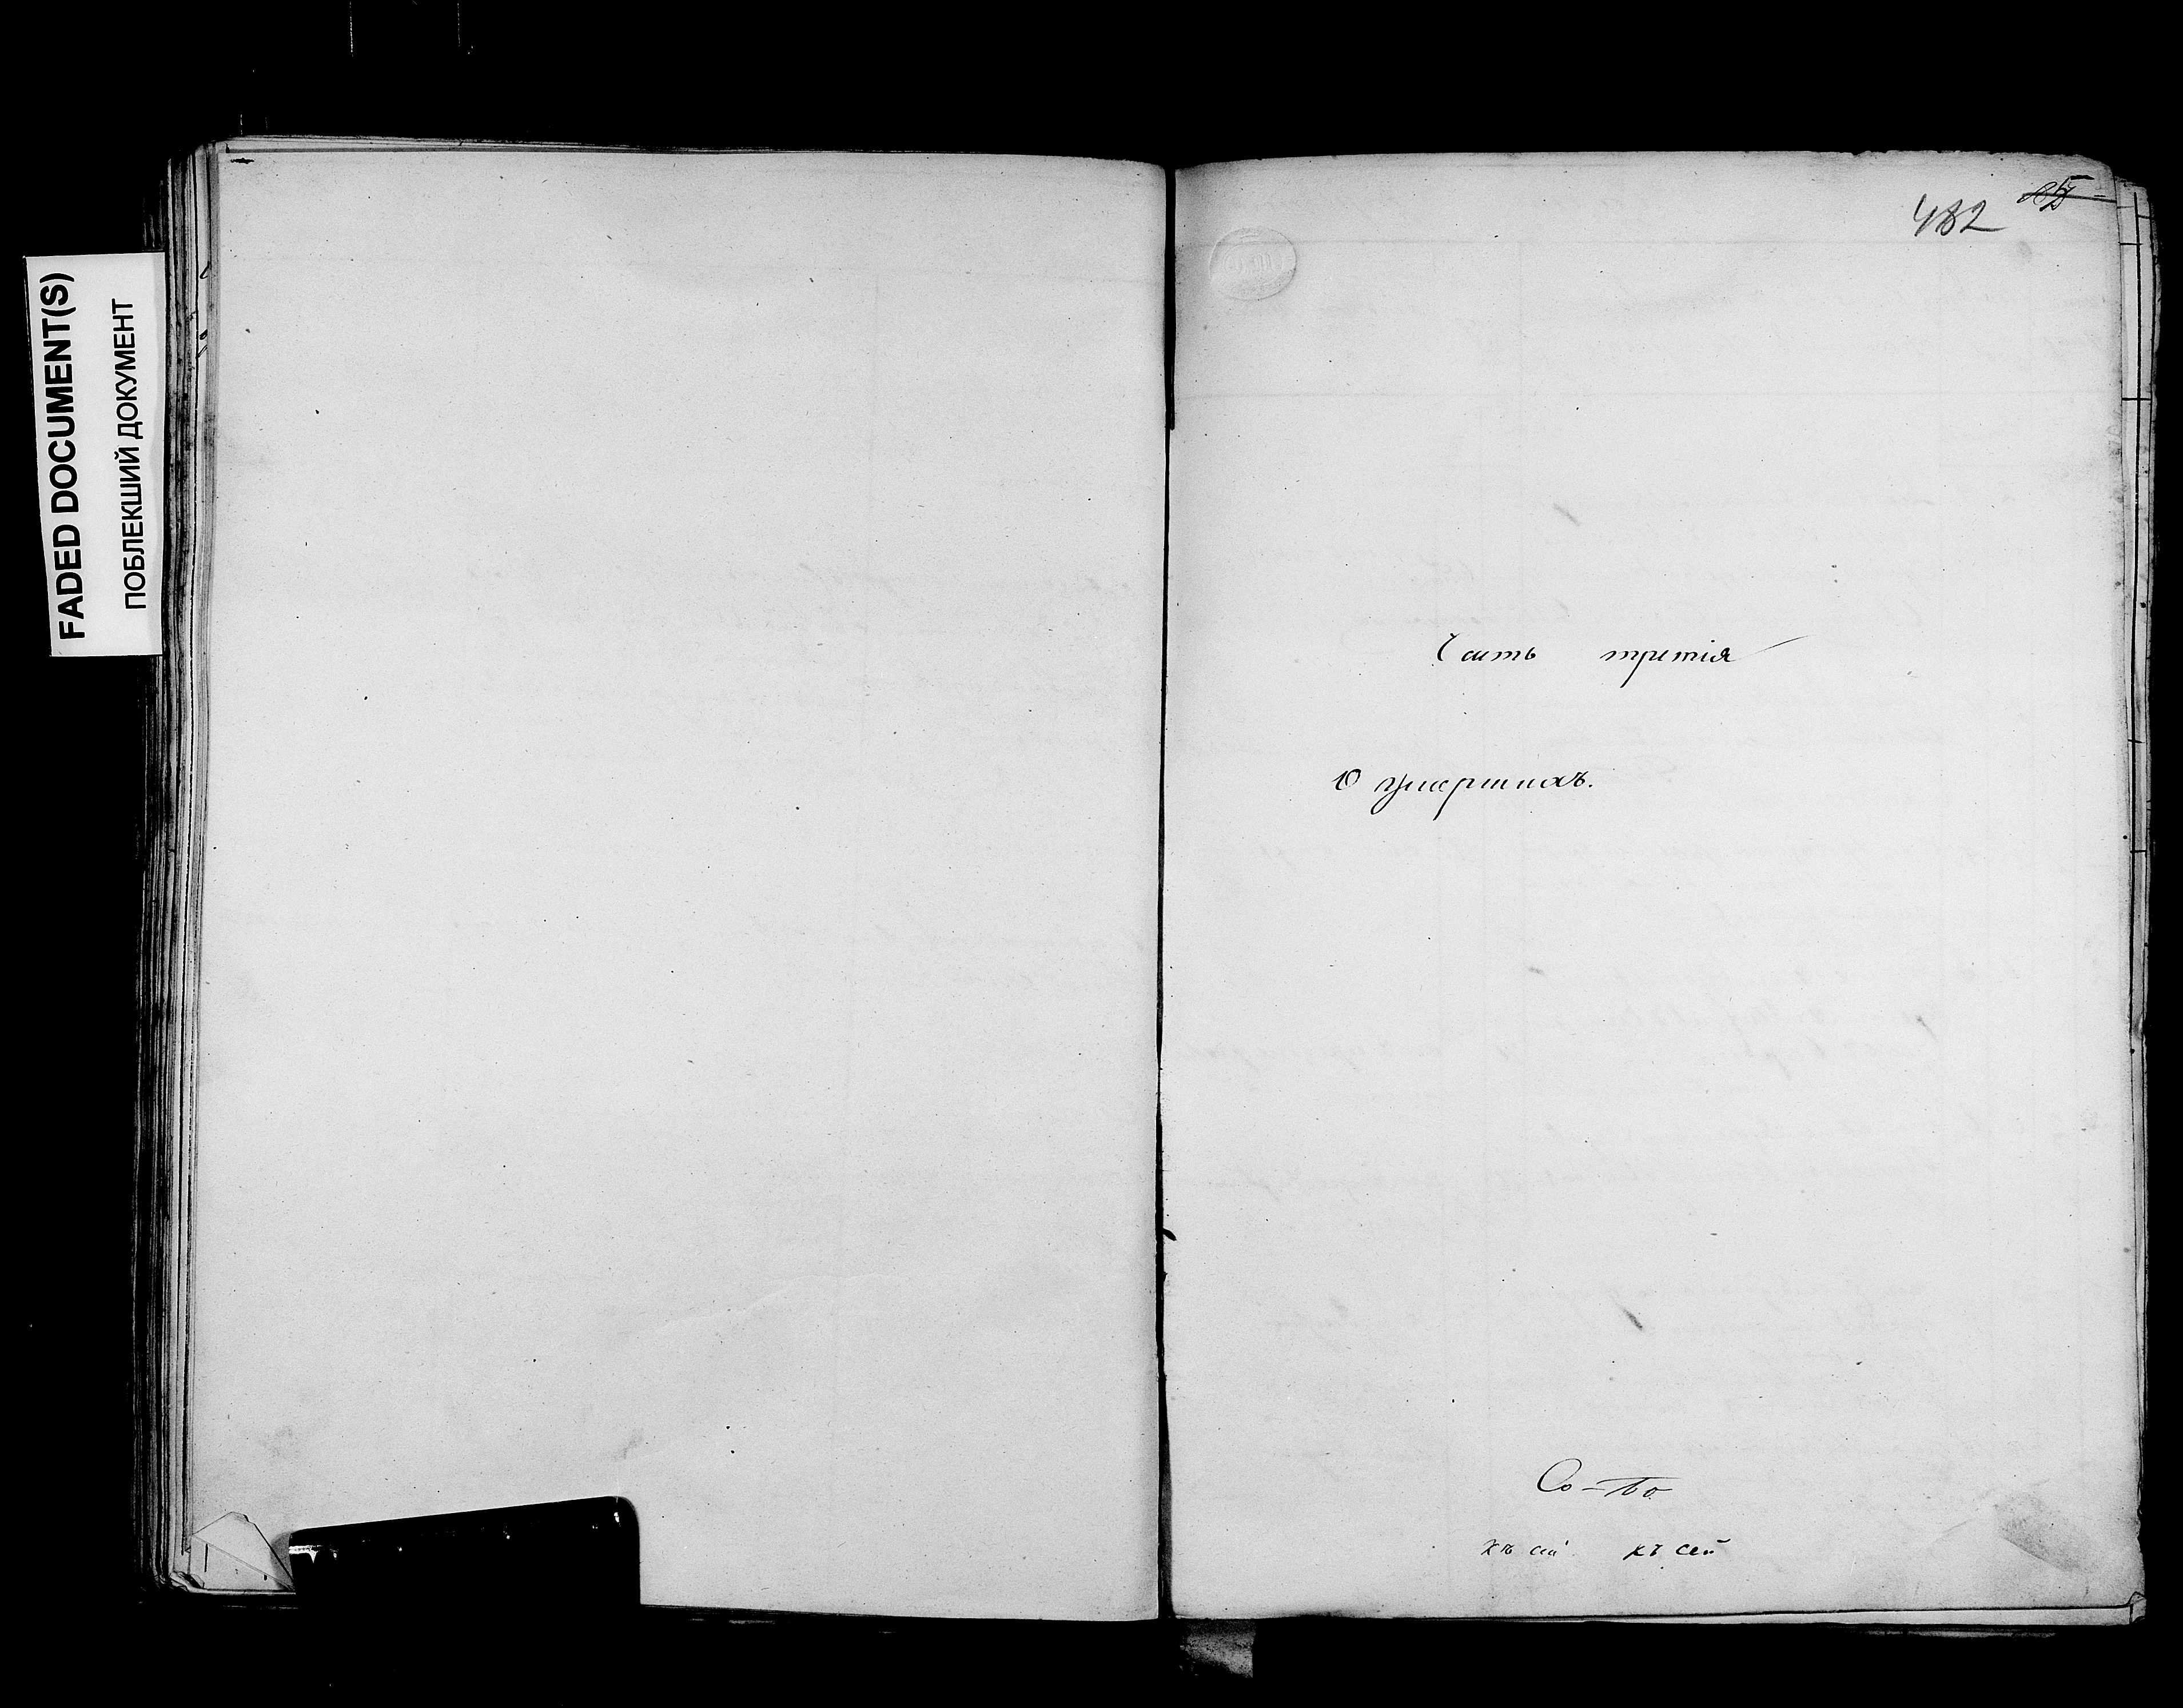 FADED DOCUMENT(S)
ПОБЛЕКШИЙ ДОКУМЕНТ
482
Часть третія
О умершихъ.
Со-Бо
къ сей къ сей